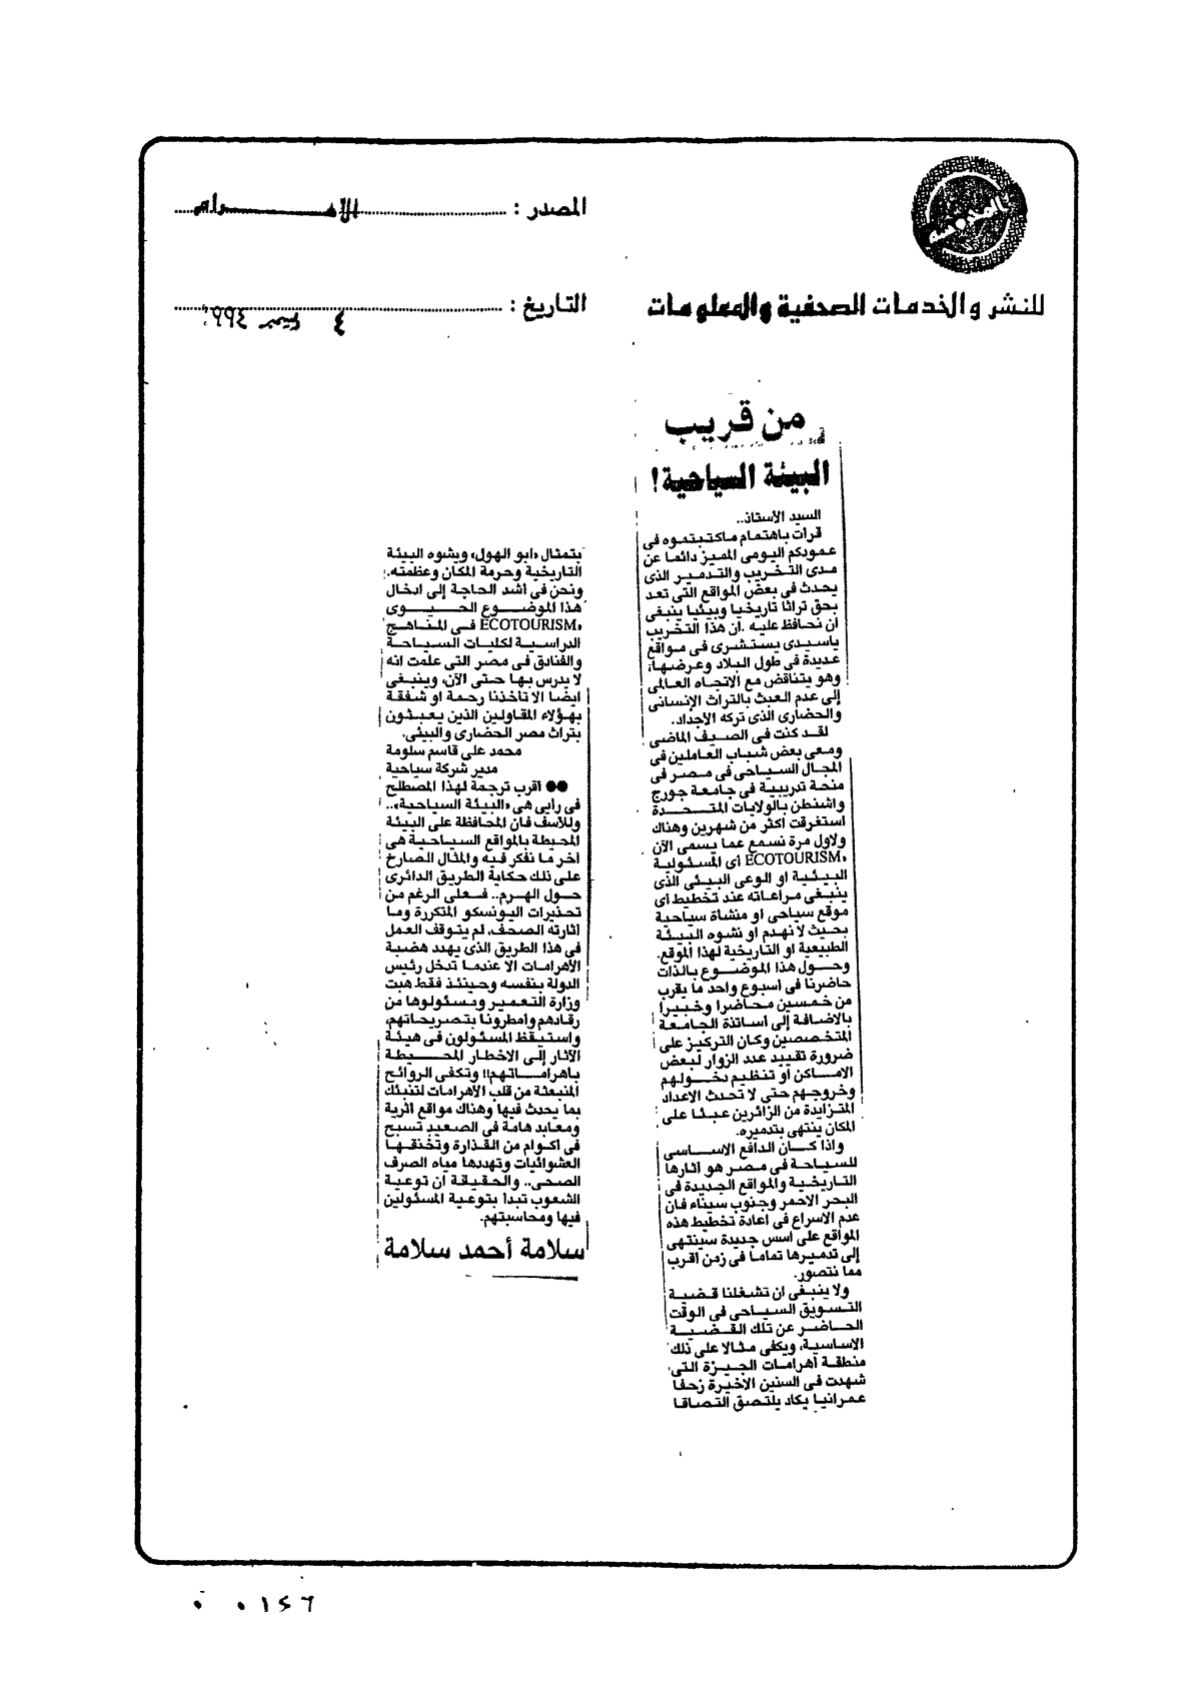 المصدر : الأهرام
للنشر والخدمات الصحفية والمعلومات
التاريخ : ٤
من قريب
البيئة السياحية!
السيد الأستاذ..
قرأت باهتمام ماكتبتموه فى
عمودكم اليومى المميز دائما عن
مدى التخريب والتدمير الذى
يحدث فى بعض المواقع التى تعد
بحق تراثا تاريخيا وبيئيا ينبغى
أن نحافظ عليه .ان هذا التخريب
ياسيدى يستشرى فى مواقع
عديدة فى طول البلاد وعرضها،
وهو يتناقض مع الاتجاه العالمى
إلى عدم العبث بالتراث الإنسانى
والحضارى الذى تركه الأجداد.
لقد كنت فى الصيف الماضى
ومعى بعض شباب العاملين فى
المجال السياحى فى مصر فى
منحة تدريبية فى جامعة جورج
واشنطن بالولايات المتحدة
استغرقت أكثر من شهرين وهناك
ولاول مرة نسمع عما يسمى الآن
«ECOTOURISM أى المسئولية
البيئية او الوعى البيئى الذى
ينبغى مراعاته عند تخطيط أى
موقع سياحى او منشاة سياحية
بحيث لا نهدم او نشوه البيئة
الطبيعية او التاريخية لهذا الموقع.
وحول هذا الموضوع بالذات
حاضرنا فى أسبوع واحد ما يقرب
من خمسين محاضرا وخبيرا
بالاضافة إلى أساتذة الجامعة
المتخصصين وكان التركيز على
ضرورة تقييد عدد الزوار لبعض
الاماكن أو تنظيم دخولهم
وخروجهم حتى لا تحدث الاعداد
المتزايدة من الزائرين عبئا على
المكان ينتهى بتدميره.
واذا كان الدافع الاساسى
للسياحة فى مصر هو آثارها
التاريخية والمواقع الجديدة فى
البحر الاحمر وجنوب سيناء فان
عدم الاسراع فى اعادة تخطيط هذه
المواقع على اسس جديدة سينتهى
إلى تدميرها تماما فى زمن اقرب
مما نتصور.
ولا ينبغى ان تشغلنا قضية
التسويق السياحى فى الوقت
الحاضر عن تلك القضية
الاساسية، ويكفى مثالا على ذلك
منطقة أهرامات الجيزة التى
شهدت فى السنين الاخيرة زحفا
عمرانيا يكاد يلتصق التصاقا
بتمثال «ابو الهول» ويشوه البيئة
التاريخية وحرمة المكان وعظمته.
ونحن فى أشد الحاجة إلى ادخال
هذا الموضوع الحيوى
«ECOTOURISM فى المناهج
الدراسية لكليات السياحة
والفنادق فى مصر التى علمت انه
لا يدرس بها حتى الآن، وينبغى
ايضا الا تاخذنا رحمة او شفقة
بهؤلاء المقاولين الذين يعبثون
بتراث مصر الحضارى والبيئى.
محمد على قاسم سلومة
مدير شركة سياحية
●● أقرب ترجمة لهذا المصطلح
فى رأيى هى «البيئة السياحية»..
وللأسف فان المحافظة على البيئة
المحيطة بالمواقع السياحية هى
آخر ما نفكر فيه والمثال الصارخ
على ذلك حكاية الطريق الدائرى
حول الهرم.. فعلى الرغم من
تحذيرات اليونسكو المتكررة وما
اثارته الصحف، لم يتوقف العمل
فى هذا الطريق الذى يهدد هضبة
الأهرامات الا عندما تدخل رئيس
الدولة بنفسه وحينئذ فقط هبت
وزارة التعمير ومسئولوها من
رقادهم وأمطرونا بتصريحاتهم،
واستيقظ المسئولون فى هيئة
الآثار إلى الاخطار المحيطة
باهراماتهم!! وتكفى الروائح
المنبعثة من قلب الأهرامات لتنبئك
بما يحدث فيها وهناك مواقع اثرية
ومعابد هامة فى الصعيد تسبح
فى أكوام من القذارة وتخنقها
العشوائيات وتهددها مياه الصرف
الصحى.. والحقيقة أن توعية
الشعوب تبدأ بتوعية المسئولين
فيها ومحاسبتهم.
سلامة أحمد سلامة
٠ ٠١٤٦